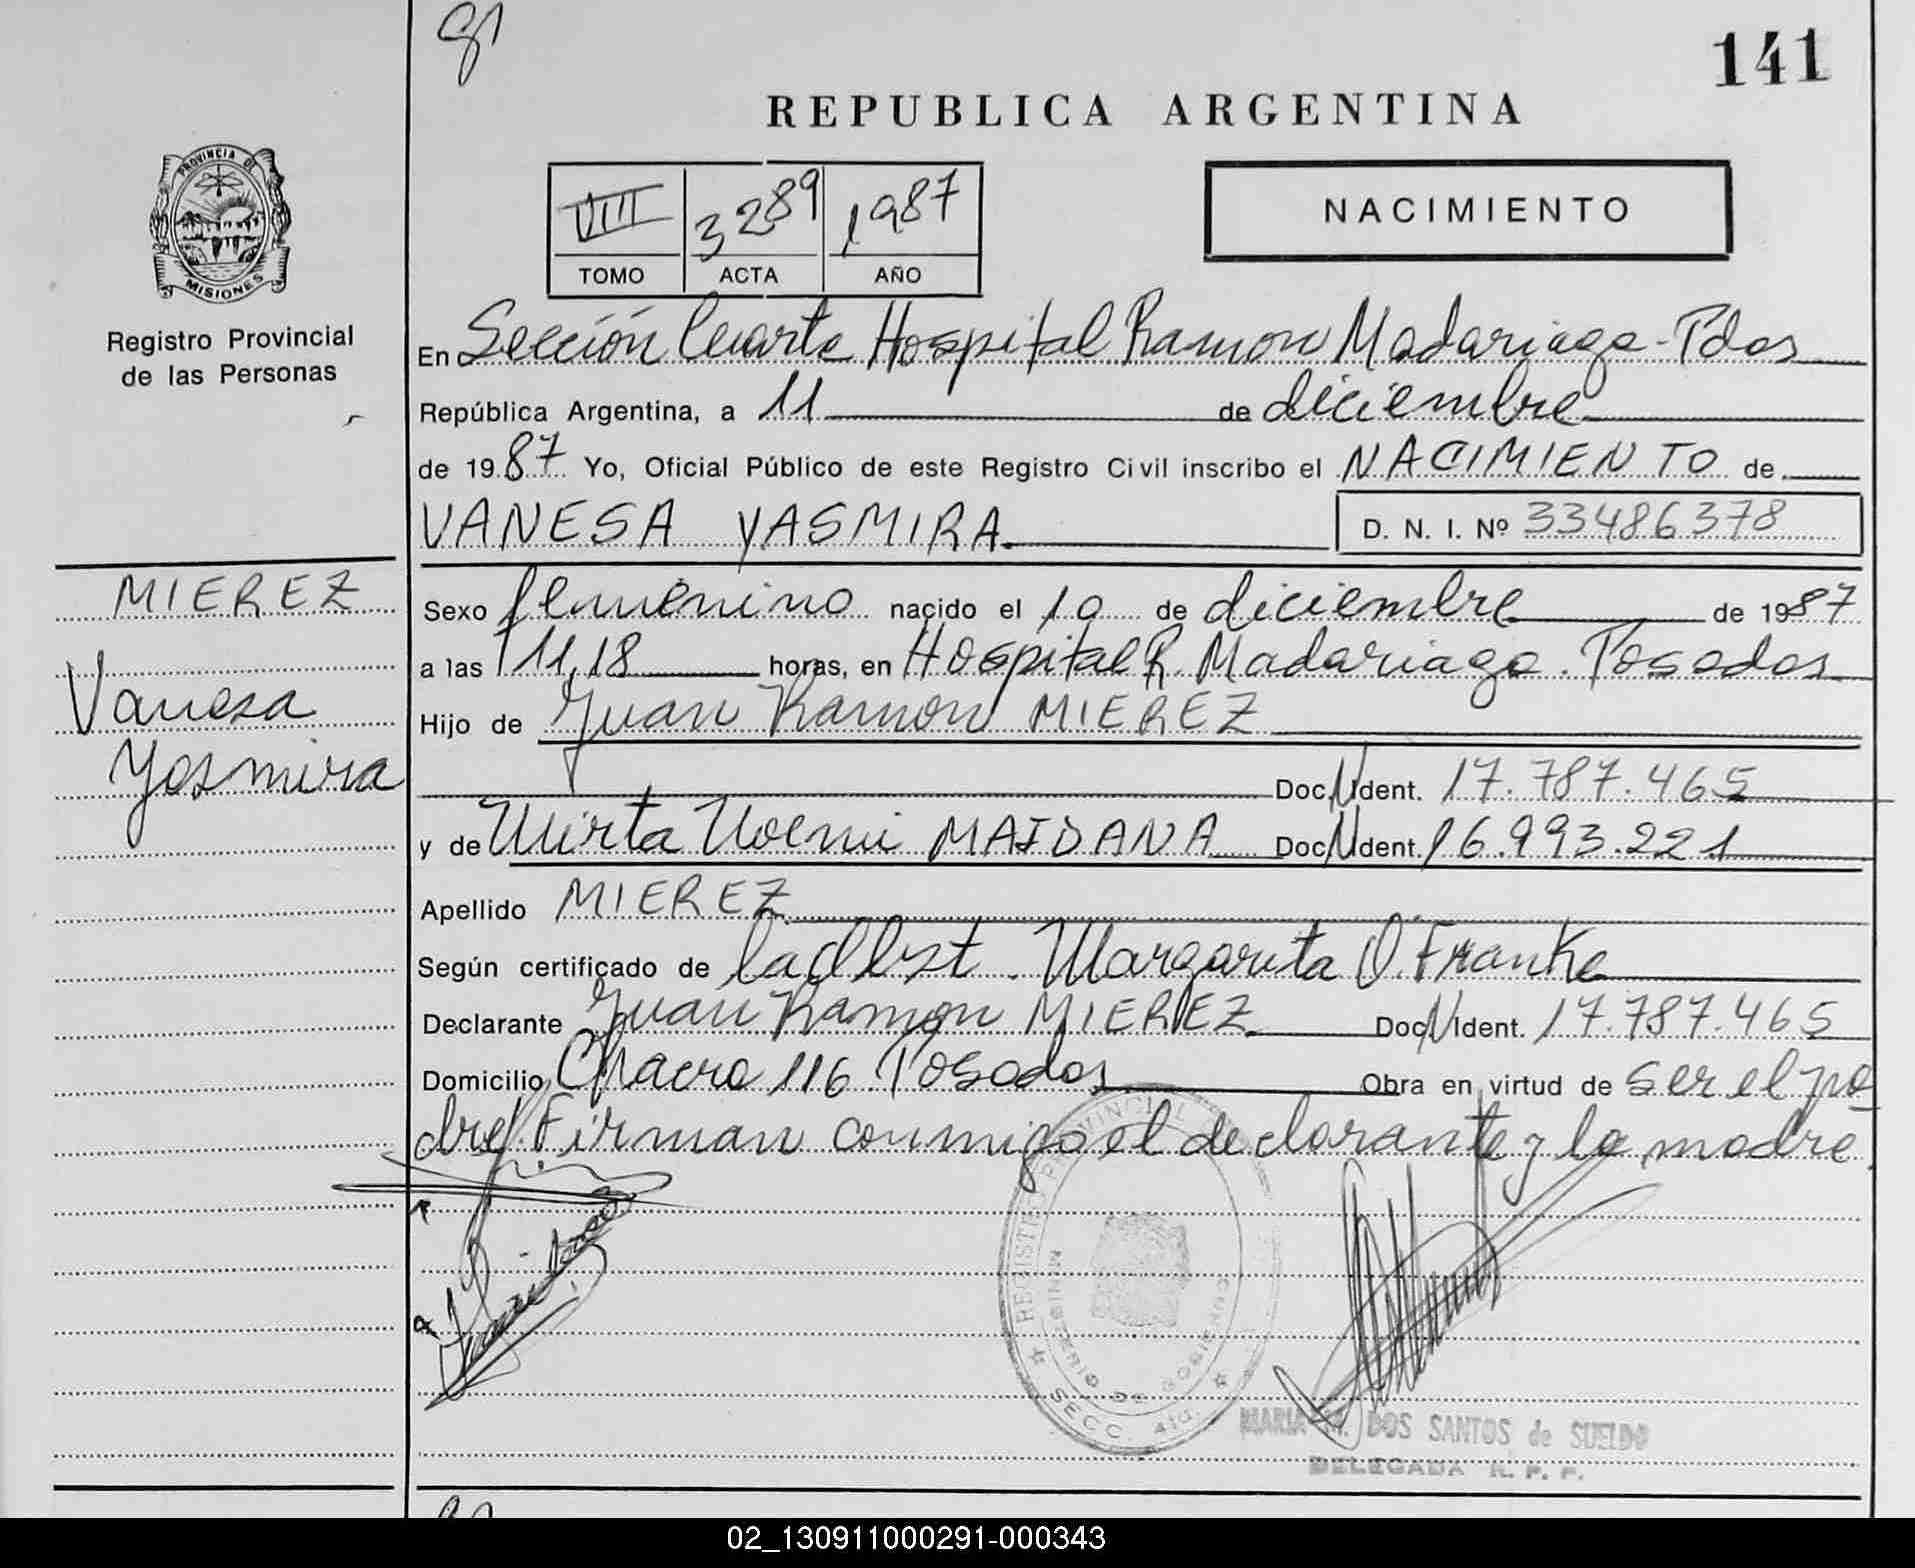 141
REPUBLICA ARGENTINA
PROVINCIA DE
MISIONES
Registro Provincial
de las Personas
VIII 3289 1987
TOMO ACTA AÑO
NACIMIENTO
En Sección Cuarta Hospital Ramon Madariaga - Pdas
República Argentina, a 11 de diciembre
de 1987 Yo, Oficial Público de este Registro Civil inscribo el NACIMIENTO de
VANESA YASMIRA
D. N. I. Nº 33486378
MIEREZ
Vanesa
Yasmira
Sexo femenino nacido el 10 de diciembre de 1987
a las 11,18 horas, en Hospital R. Madariaga. Posadas
Hijo de Juan Ramon MIEREZ
Doc. Ident. 17.787.465
y de Mirta Noemi MAIDANA Doc. Ident. 16.993.221
Apellido MIEREZ
Según certificado de la Obst. Margarita O. Franke
Declarante Juan Ramon MIEREZ Doc. Ident. 17.787.465
Domicilio Chacra 116 Posadas Obra en virtud de ser el pa
dre. Firman conmigo el declarante y la madre.
REGISTRO PROVINCIAL
MINISTERIO DE GOBIERNO
SECC. 4ta.
MARIA M. DOS SANTOS de SUELDO
DELEGADA R. P. P.
02_130911000291-000343